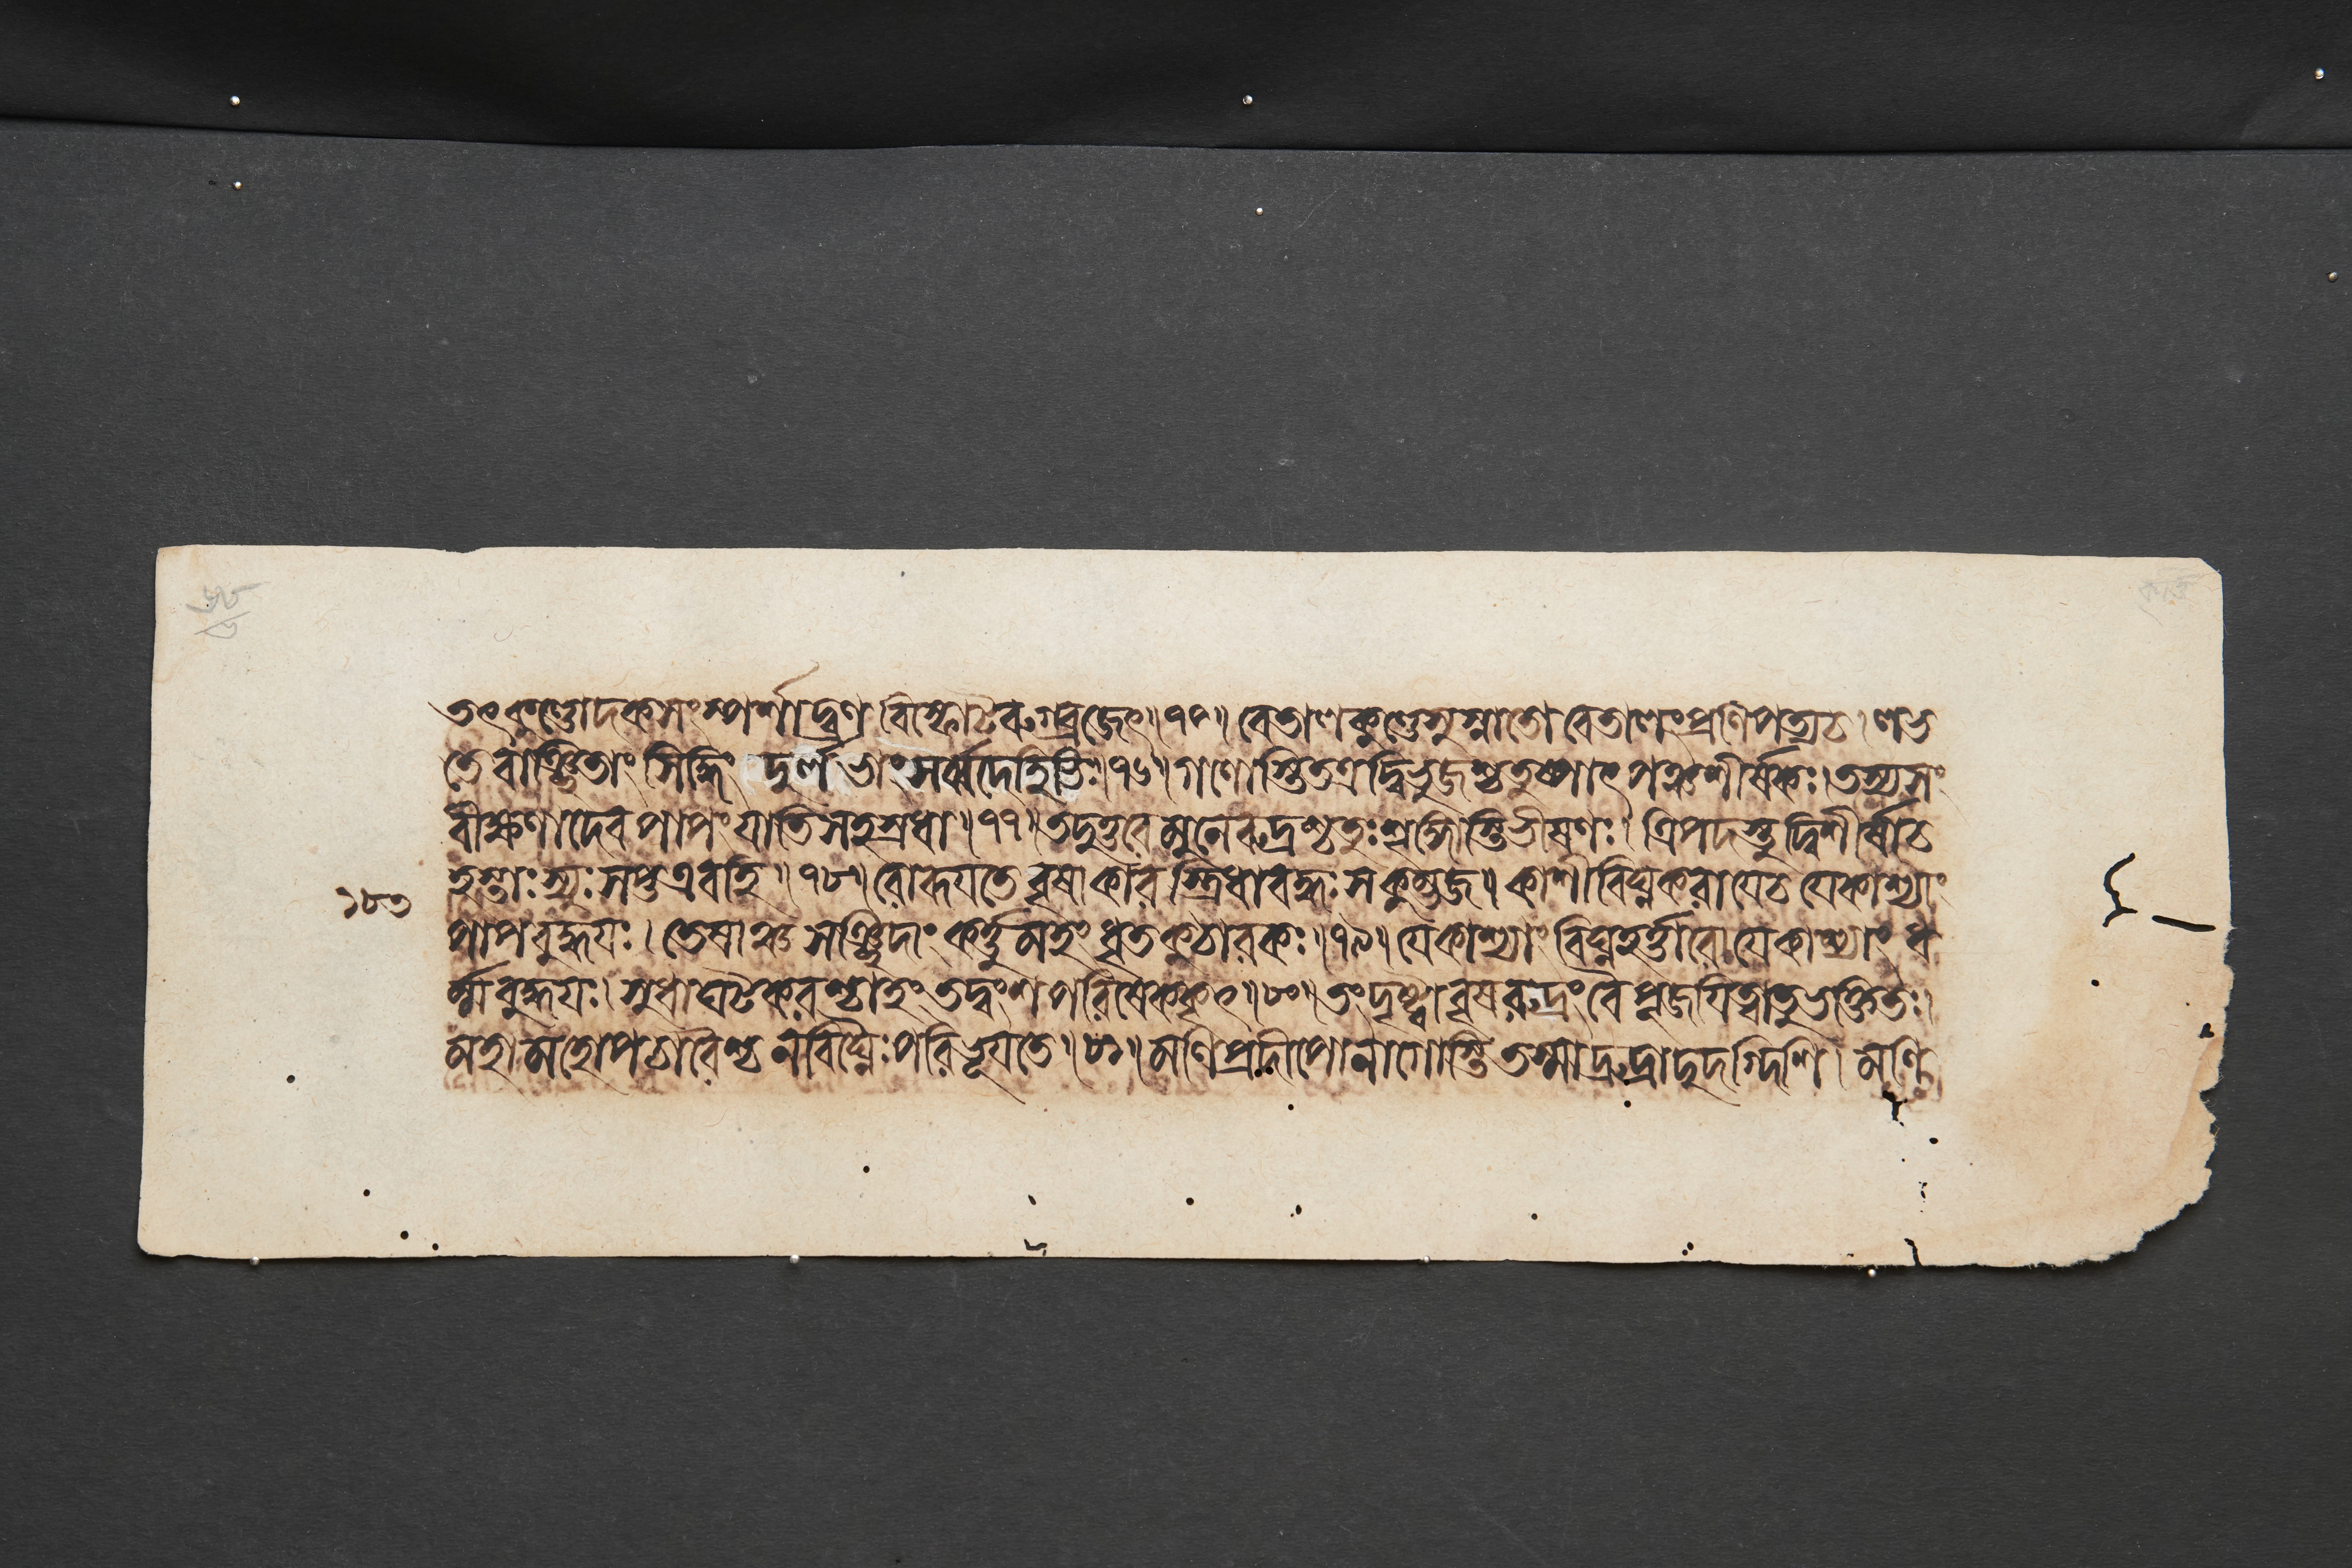 তৎকুণ্ডোদকসংস্পর্শাদ্ব্রণবিস্ফোটরুগ্ব্রজেৎ॥৭৫॥ বেতালকুণ্ডেসুস্নাতো বেতালংপ্রণিপত্যচ। লভ
তে বাঞ্ছিতাং সিদ্ধিং দুর্লভাংসর্ব্বদেহিভিঃ॥৭৬॥ গণোস্তিতত্রদ্বিভুজশ্চতুষ্পাৎপঞ্চশীর্ষকঃ। তস্যসং
বীক্ষণাদেব পাপং যাতিসহস্রধা॥৭৭॥ তদুত্তরে মুনেরুদ্রশ্চতুঃশৃঙ্গোস্তিভীষণঃ। ত্রিপদস্তুদ্বিশীর্ষাচ
হস্তাঃস্যুঃসপ্তএবহি॥৭৮॥ রোরূযতে বৃষাকারস্ত্রিধাবদ্ধঃসকুম্ভজ॥ কাশীবিঘ্নকরাযেচ যেকাশ্যাং
১৮৩
পাপবুদ্ধযঃ। তেষাঞ্চ সঞ্ছিদাং কর্ত্তুমহং ধৃতকুঠারকঃ॥৭৯॥ যেকাশ্যাং বিঘ্নহর্ত্তারো যেকাশ্যাং ধ
র্ম্মবুদ্ধযঃ। সুধাঘটকরশ্চাহং তদ্বংশপরিষেককৃৎ॥৮০॥ তংদৃষ্ট্বাবৃষরুদ্রং বৈপূজযিত্বাতুভক্তিতঃ।
মহামহোপচারৈশ্চ নবিঘ্নৈঃ পরিভূযতে॥৮১॥ মণিপ্রদীপোনাগোস্তি তস্মাদ্রুদ্রাদুদগ্দিশি। মণি